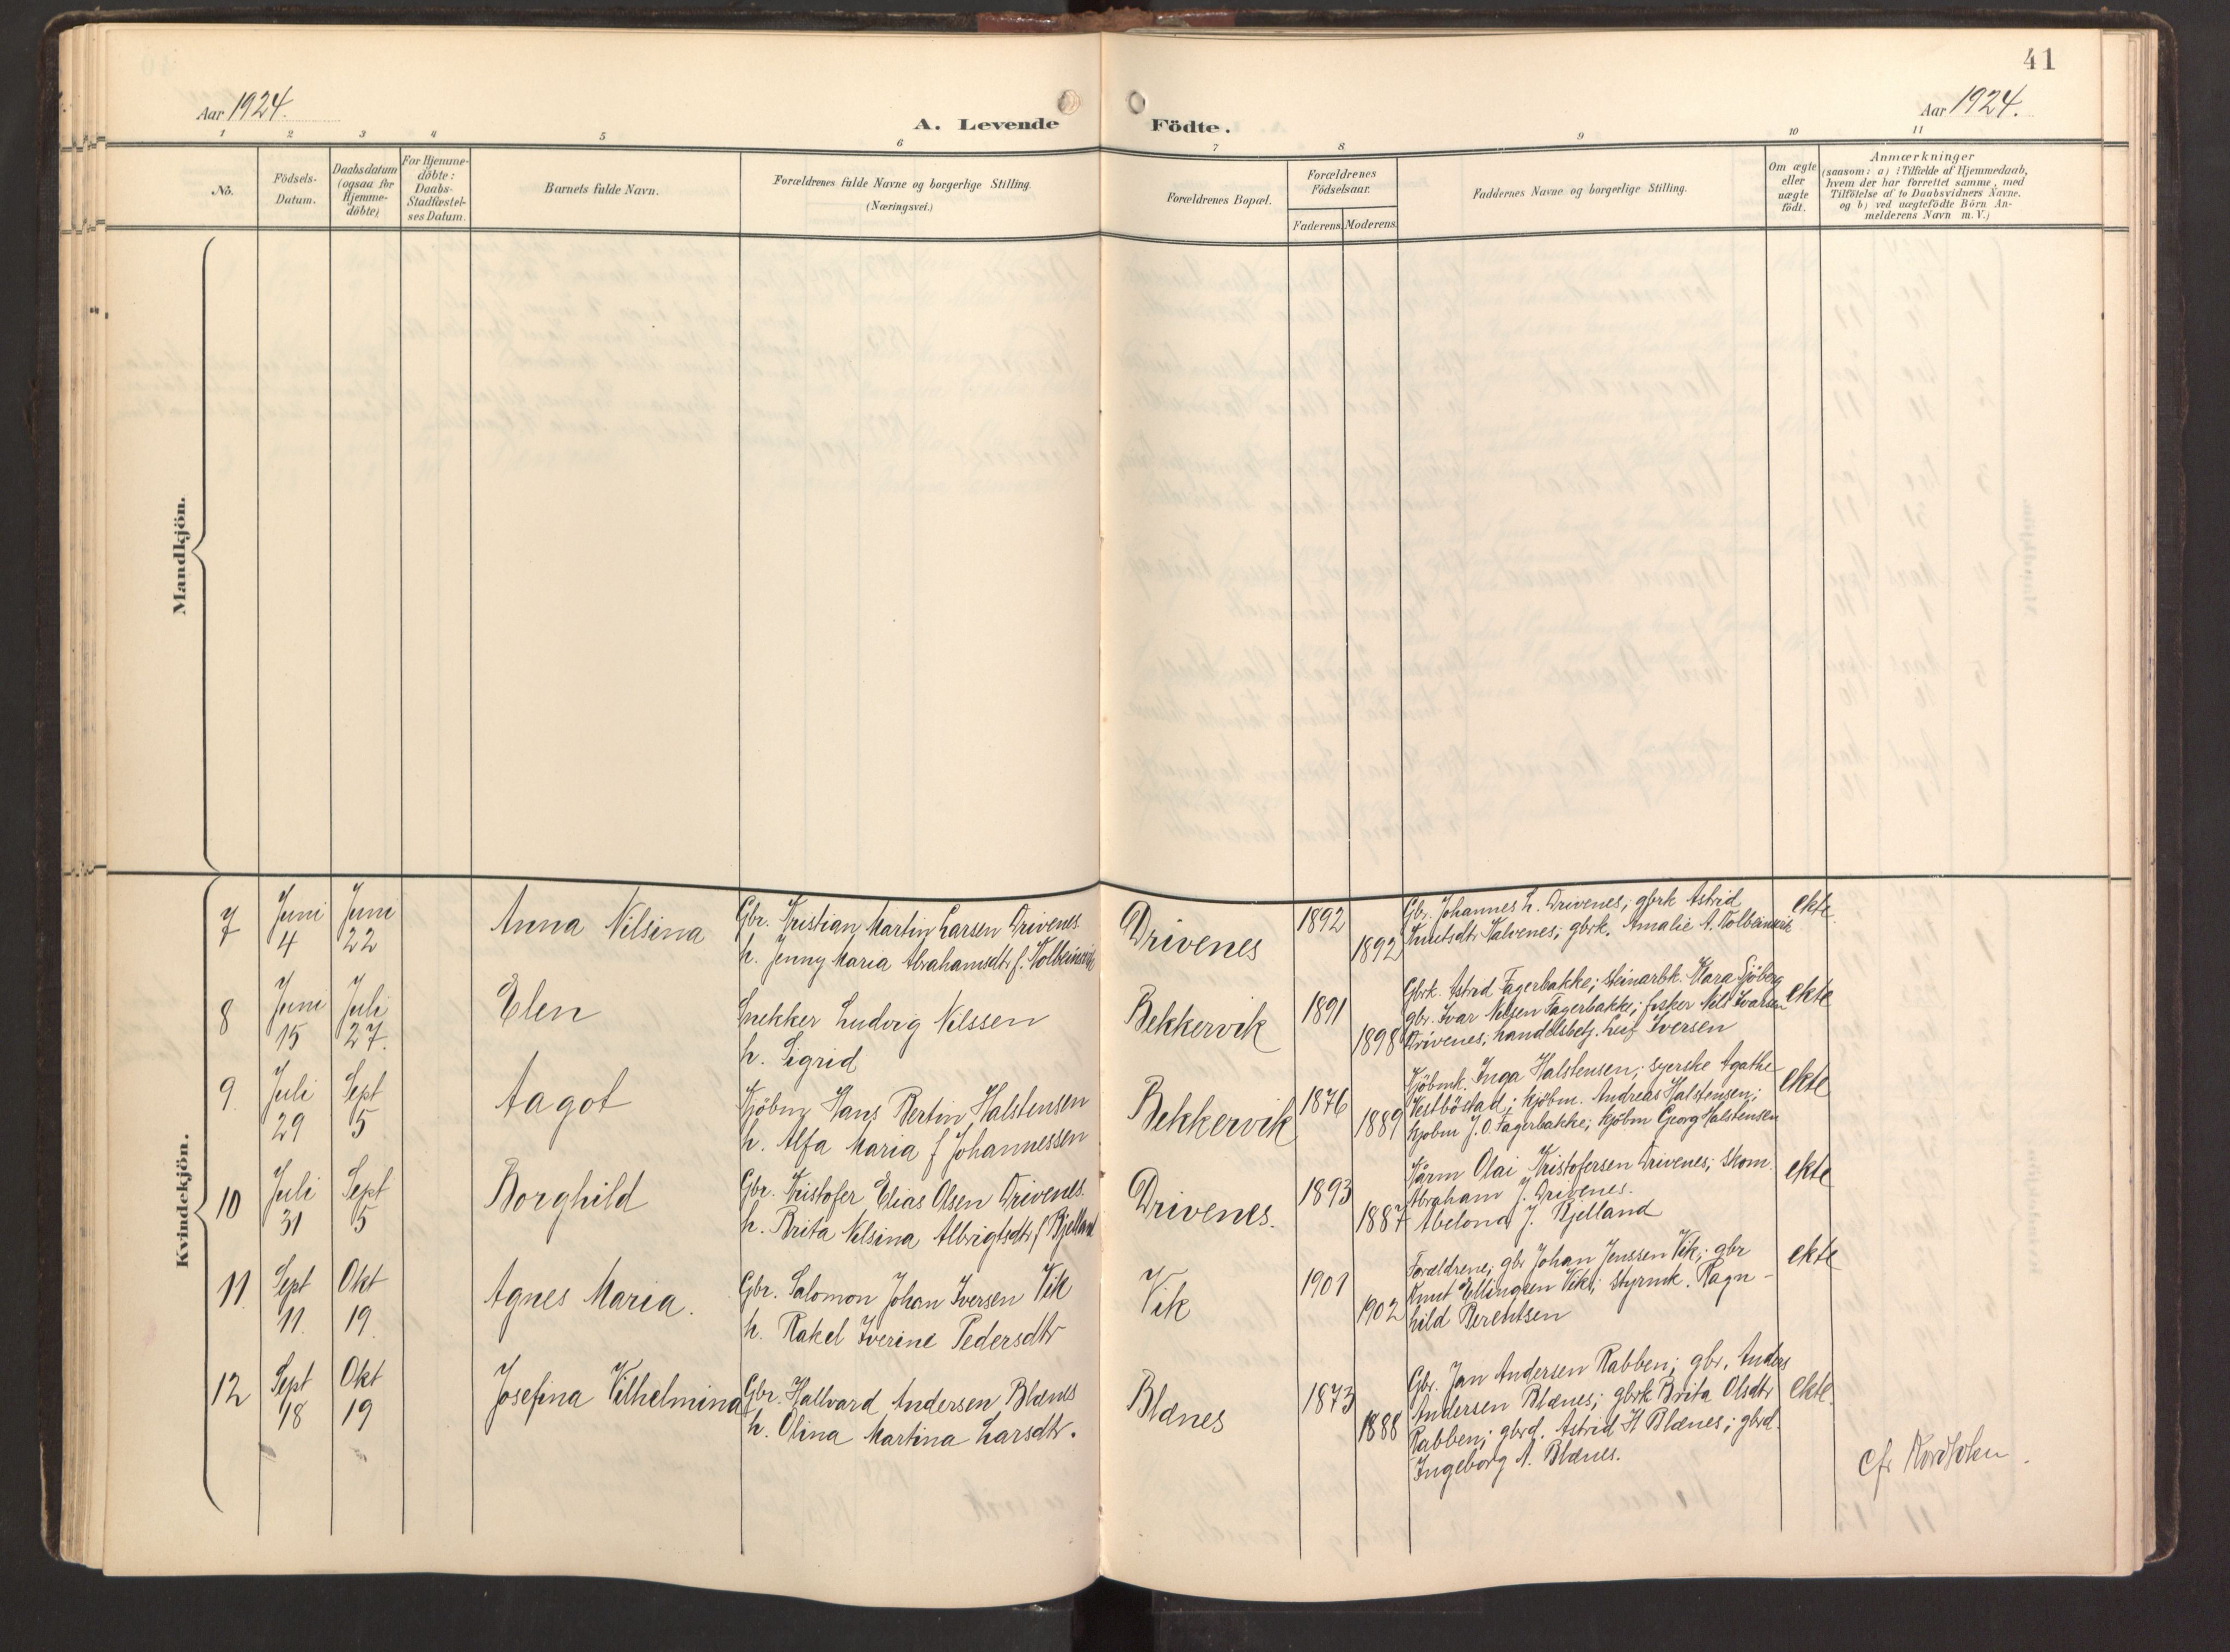 41
Aar 1924.
A. Levende Födte.
Aar 1924.
1 2 3 4 5 6 7 8 9 10 11
No.
Födsels-
Datum.
Daabsdatum
(ogsaa for
Hjemme-
döbte)
For Hjemme-
döbte:
Daabs-
Stadfæstel-
ses Datum.
Barnets fulde Navn.
Forældrenes fulde Navne og borgerlige Stilling.
(Næringsvei.)
Forældrenes Bopæl.
Forældrenes
Födselsaar.
Faderens. Moderens.
Faddernes Navne og borgerlige Stilling.
Om ægte
eller
uægte
födt.
Anmærkninger
(saasom: a) i Tilfælde af Hjemmedaab,
hvem der har forrettet samme, med
Tilföielse af to Daabsvidners Navne.
og b) ved uægtefödte Börn An-
melderens Navn m. V.)
Mandkjön.
Kvindekjön.
7
Juni
4
Juni
22
Anna Nilsina
Gbr. Kristian Martin Larsen Drivenes
h. Jenny Maria Abrahamsdtr f. Kolbeinsvik
Drivenes
1892
1892
Gbr. Johannes L. Drivenes; gbrk Astrid
Knutsdtr Kalvenes; gbrk. Amalie A. Kolbeinsvik
ekte.
8
Juni
15
Juli
27.
Elen
Snekker Ludvig Nilssen
h. Sigrid
Bekkervik
1891
1898
Gbrk. Astrid Fagerbakke; steinarbk. Klara Sjöberg
gbr. Ivar Nilsen Fagerbakke; fisker Nils Ivarsen
Drivenes; handelsbetj. Leif Iversen
ekte
9
Juli
29
Sept
5
Aagot
Kjöbm Hans Bertin Halstensen
h. Alfa Maria f Johannessen
Bekkervik
1876
1889
Kjöbmk. Inga Halstensen; syerske Agathe
Vestböstad; kjöbm. Andreas Halstensen;
kjöbm J. O. Fagerbakke; kjöbm Georg Halstensen
ekte
10
Juli
31
Sept
5
Borghild
Gbr. Kristofer Elias Olsen Drivenes.
h. Brita Nilsina Albrigtsdtr f Bjelland
Drivenes.
1893
1887
Olai Kristofersen Drivenes; Skom.
Abraham J. Drivenes.
Abelona J. Bjelland
ekte
11
Sept
11.
Okt
19.
Agnes Maria.
Gbr. Salomon Johan Iversen Vik
h. Rakel Iverine Pedersdtr
Vik
1901
1902
Forældrene; gbr Johan Jenssen Vik; gbr
Knut Ellingsen Vik; Styrmk. Ragn-
hild Berentsen
ekte
12
Sept
18
Okt
19
Josefina Vilhelmina
Gbr. Hallvard Andersen Blænes
h. Olina Martina Larsdtr.
Blænes
1873
1888
Gbr. Jan Andersen Rabben; gbr. Anders
Andersen Blænes; gbrk Brita Olsdtr
Rabben; gbrd. Astrid H Blænes; gbrd.
Ingeborg A. Blænes.
ekte.
cfr